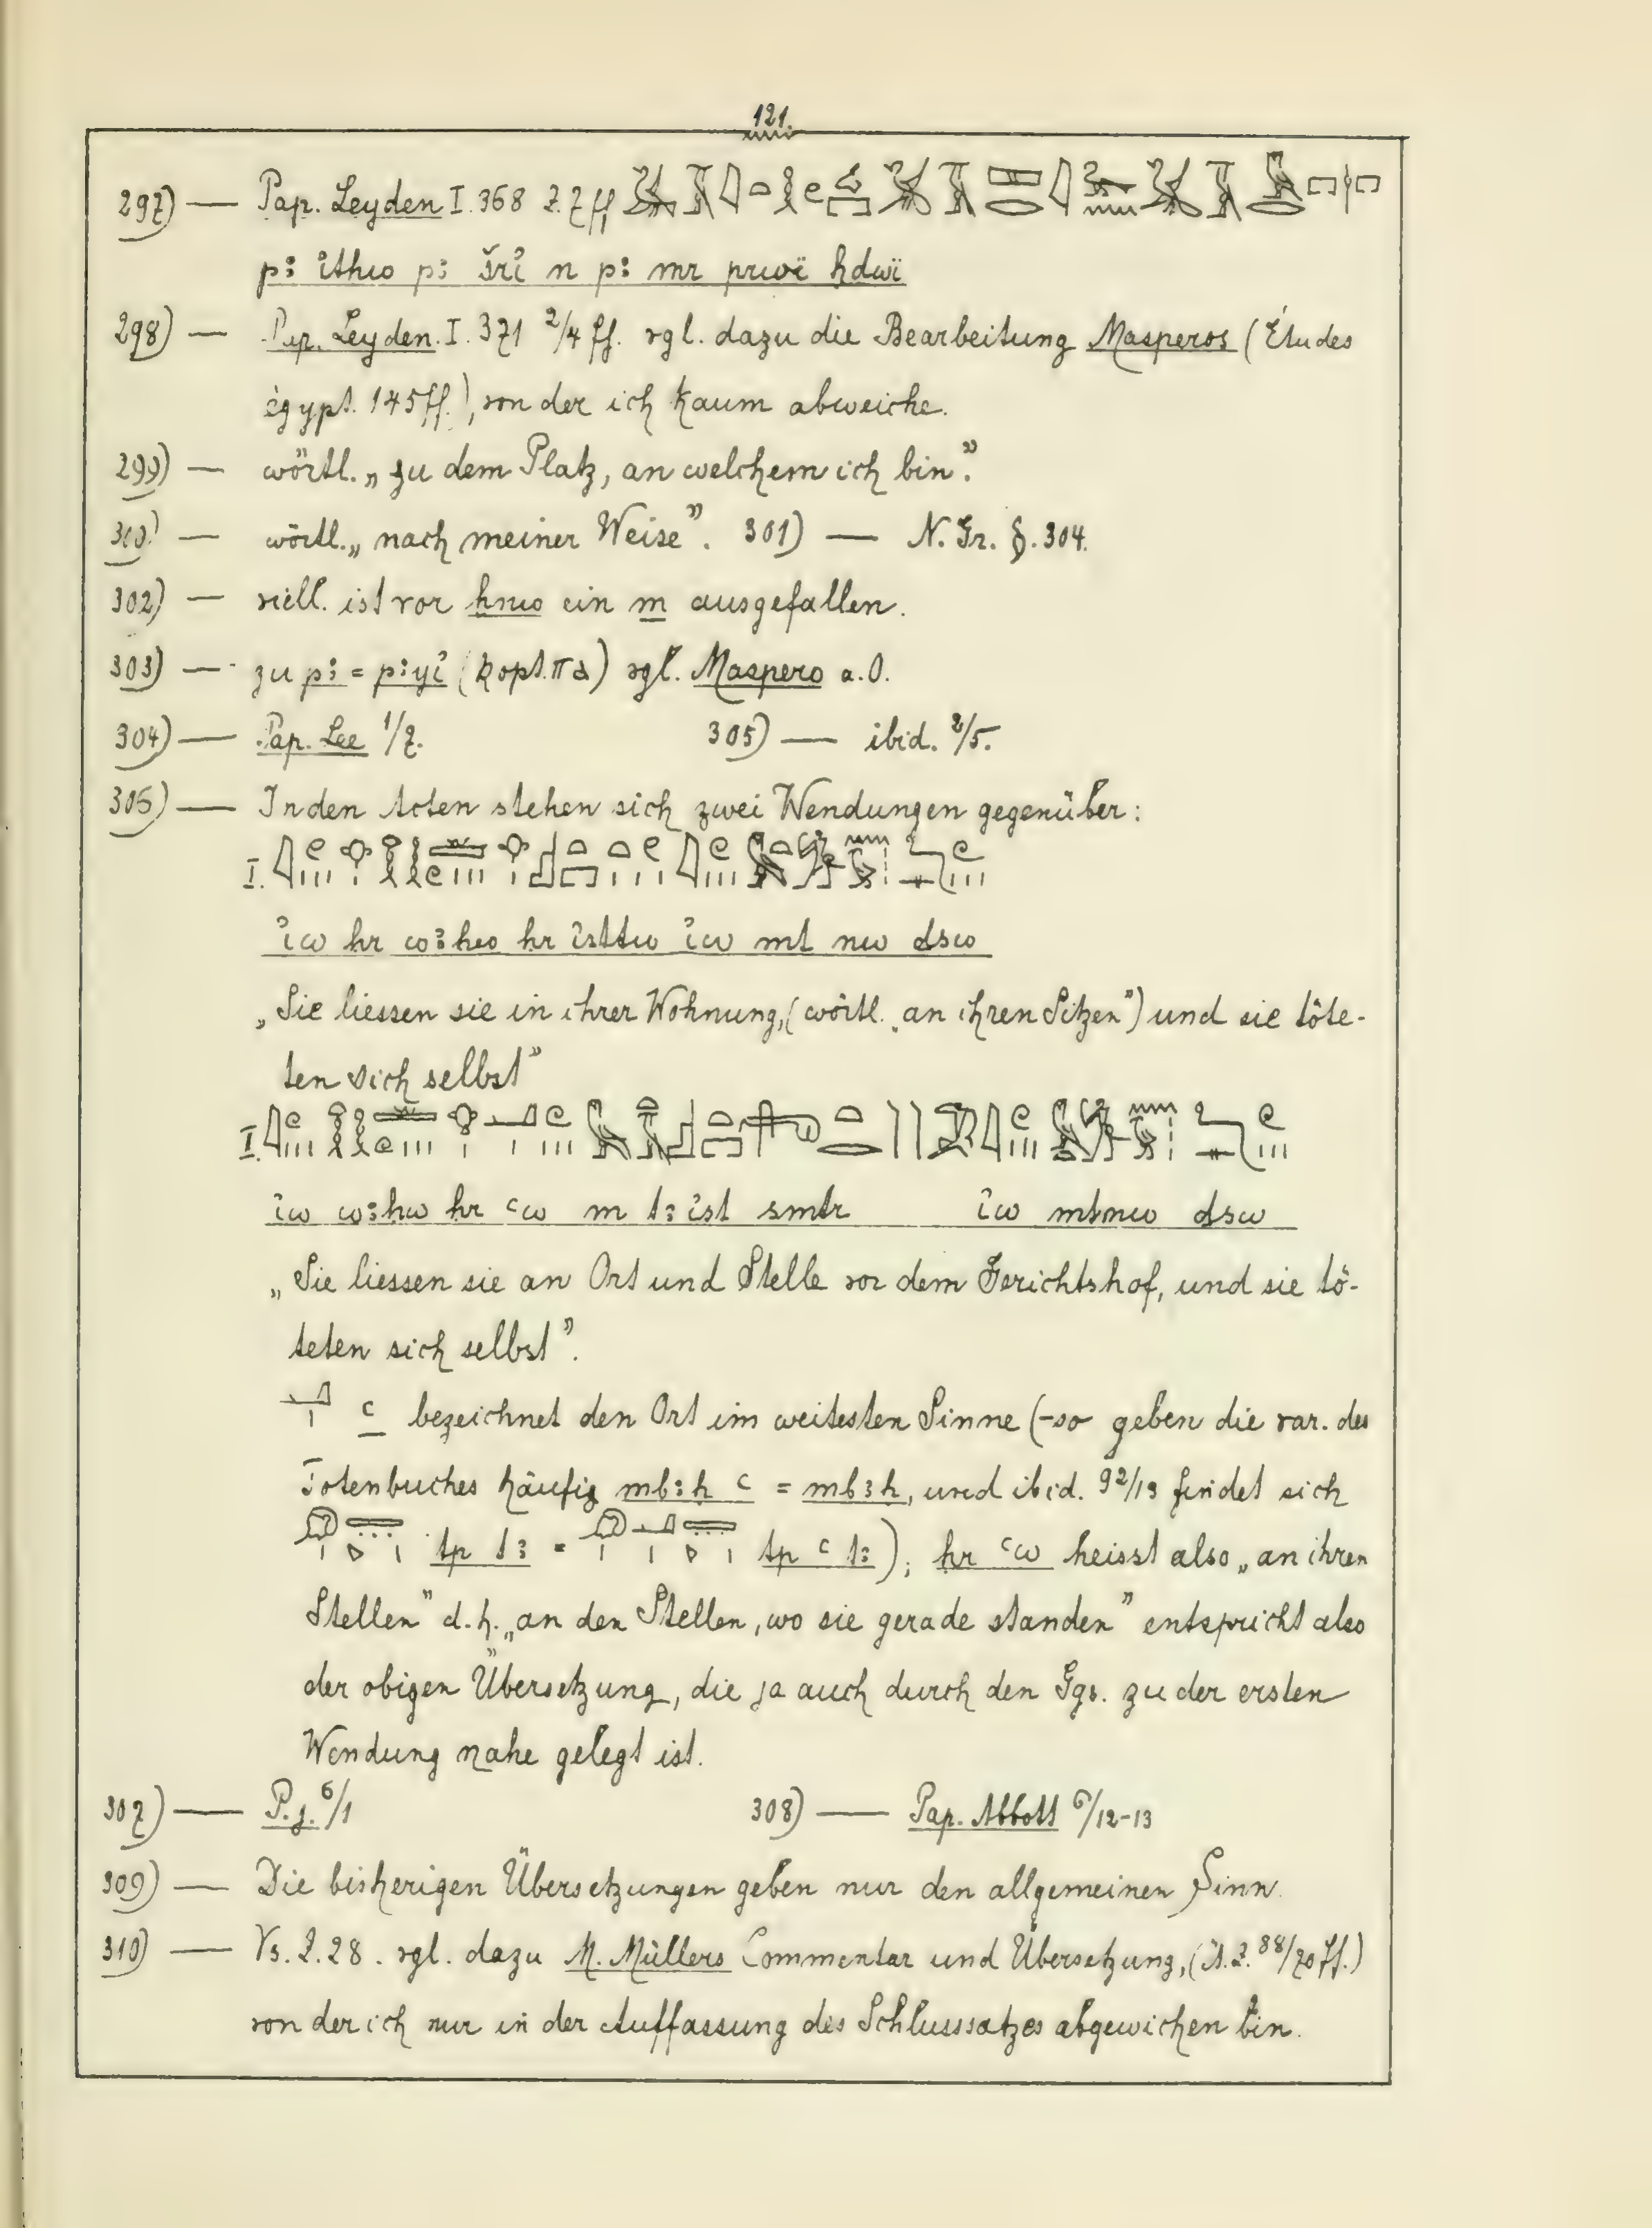 121.
297) — Pap. Leyden I. 368 Z. 7 ff
pꜣ ἰthw pꜣ šrἰ n pꜣ mr prwï ḥdwï
298) — Pap. Leyden. I. 371 2/4 ff. vgl. dazu die Bearbeitung Masperos (Études
égypt. 145ff.), von der ich kaum abweiche.
299) — wörtl. „zu dem Platz, an welchem ich bin”.
300) — wörtl. „nach meiner Weise”. 301) — N. Gr. §. 304.
302) — viell. ist vor hnw ein m ausgefallen.
303) — zu pꜣ = pꜣyἰ (kopt. ⲡⲁ) vgl. Maspero a. O.
304) — Pap. Lee 1/7. 305) — ibid. 2/5.
306) — In den Acten stehen sich zwei Wendungen gegenüber:
I.
ἰw hr wꜣhw hr ἰsttw ἰw mt nw dsw
„Sie liessen sie in ihrer Wohnung, (wörtl. „an ihren Sitzen”) und sie töte-
ten sich selbst”
I.
ἰw wꜣhw hr ꜥw m tꜣ ἰst smtr ἰw mtnw dsw
„Sie liessen sie an Ort und Stelle vor dem Gerichtshof, und sie tö-
teten sich selbst”.
ꜥ bezeichnet den Ort im weitesten Sinne (-so geben die var. des
Totenbuches häufig mbꜣh ꜥ = mbꜣh, und ibid. 92/13 findet sich
tp tꜣ = tp ꜥ tꜣ); hr ꜥw heisst also „an ihren
Stellen” d. h. „an den Stellen, wo sie gerade standen” entspricht also
der obigen Übersetzung, die ja auch durch den Ggs. zu der ersten
Wendung nahe gelegt ist.
307) — P. j. 6/1 308) — Pap. Abbott 6/12-13
309) — Die bisherigen Übersetzungen geben nur den allgemeinen Sinn.
310) — Vs. Z. 28. vgl. dazu M. Müllers Commentar und Übersetzung, (Ä. Z. 88/70 ff.)
von der ich nur in der Auffassung des Schlusssatzes abgewichen bin.